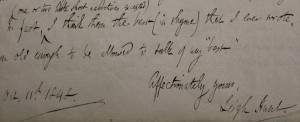 one or two other short
in fact, I think them the best (in rhyme) that I ever wrote.
am old enough to be allowed to talk of my "best"
Affectionately yours,
Leigh Hunt.
Oct. 11th 184